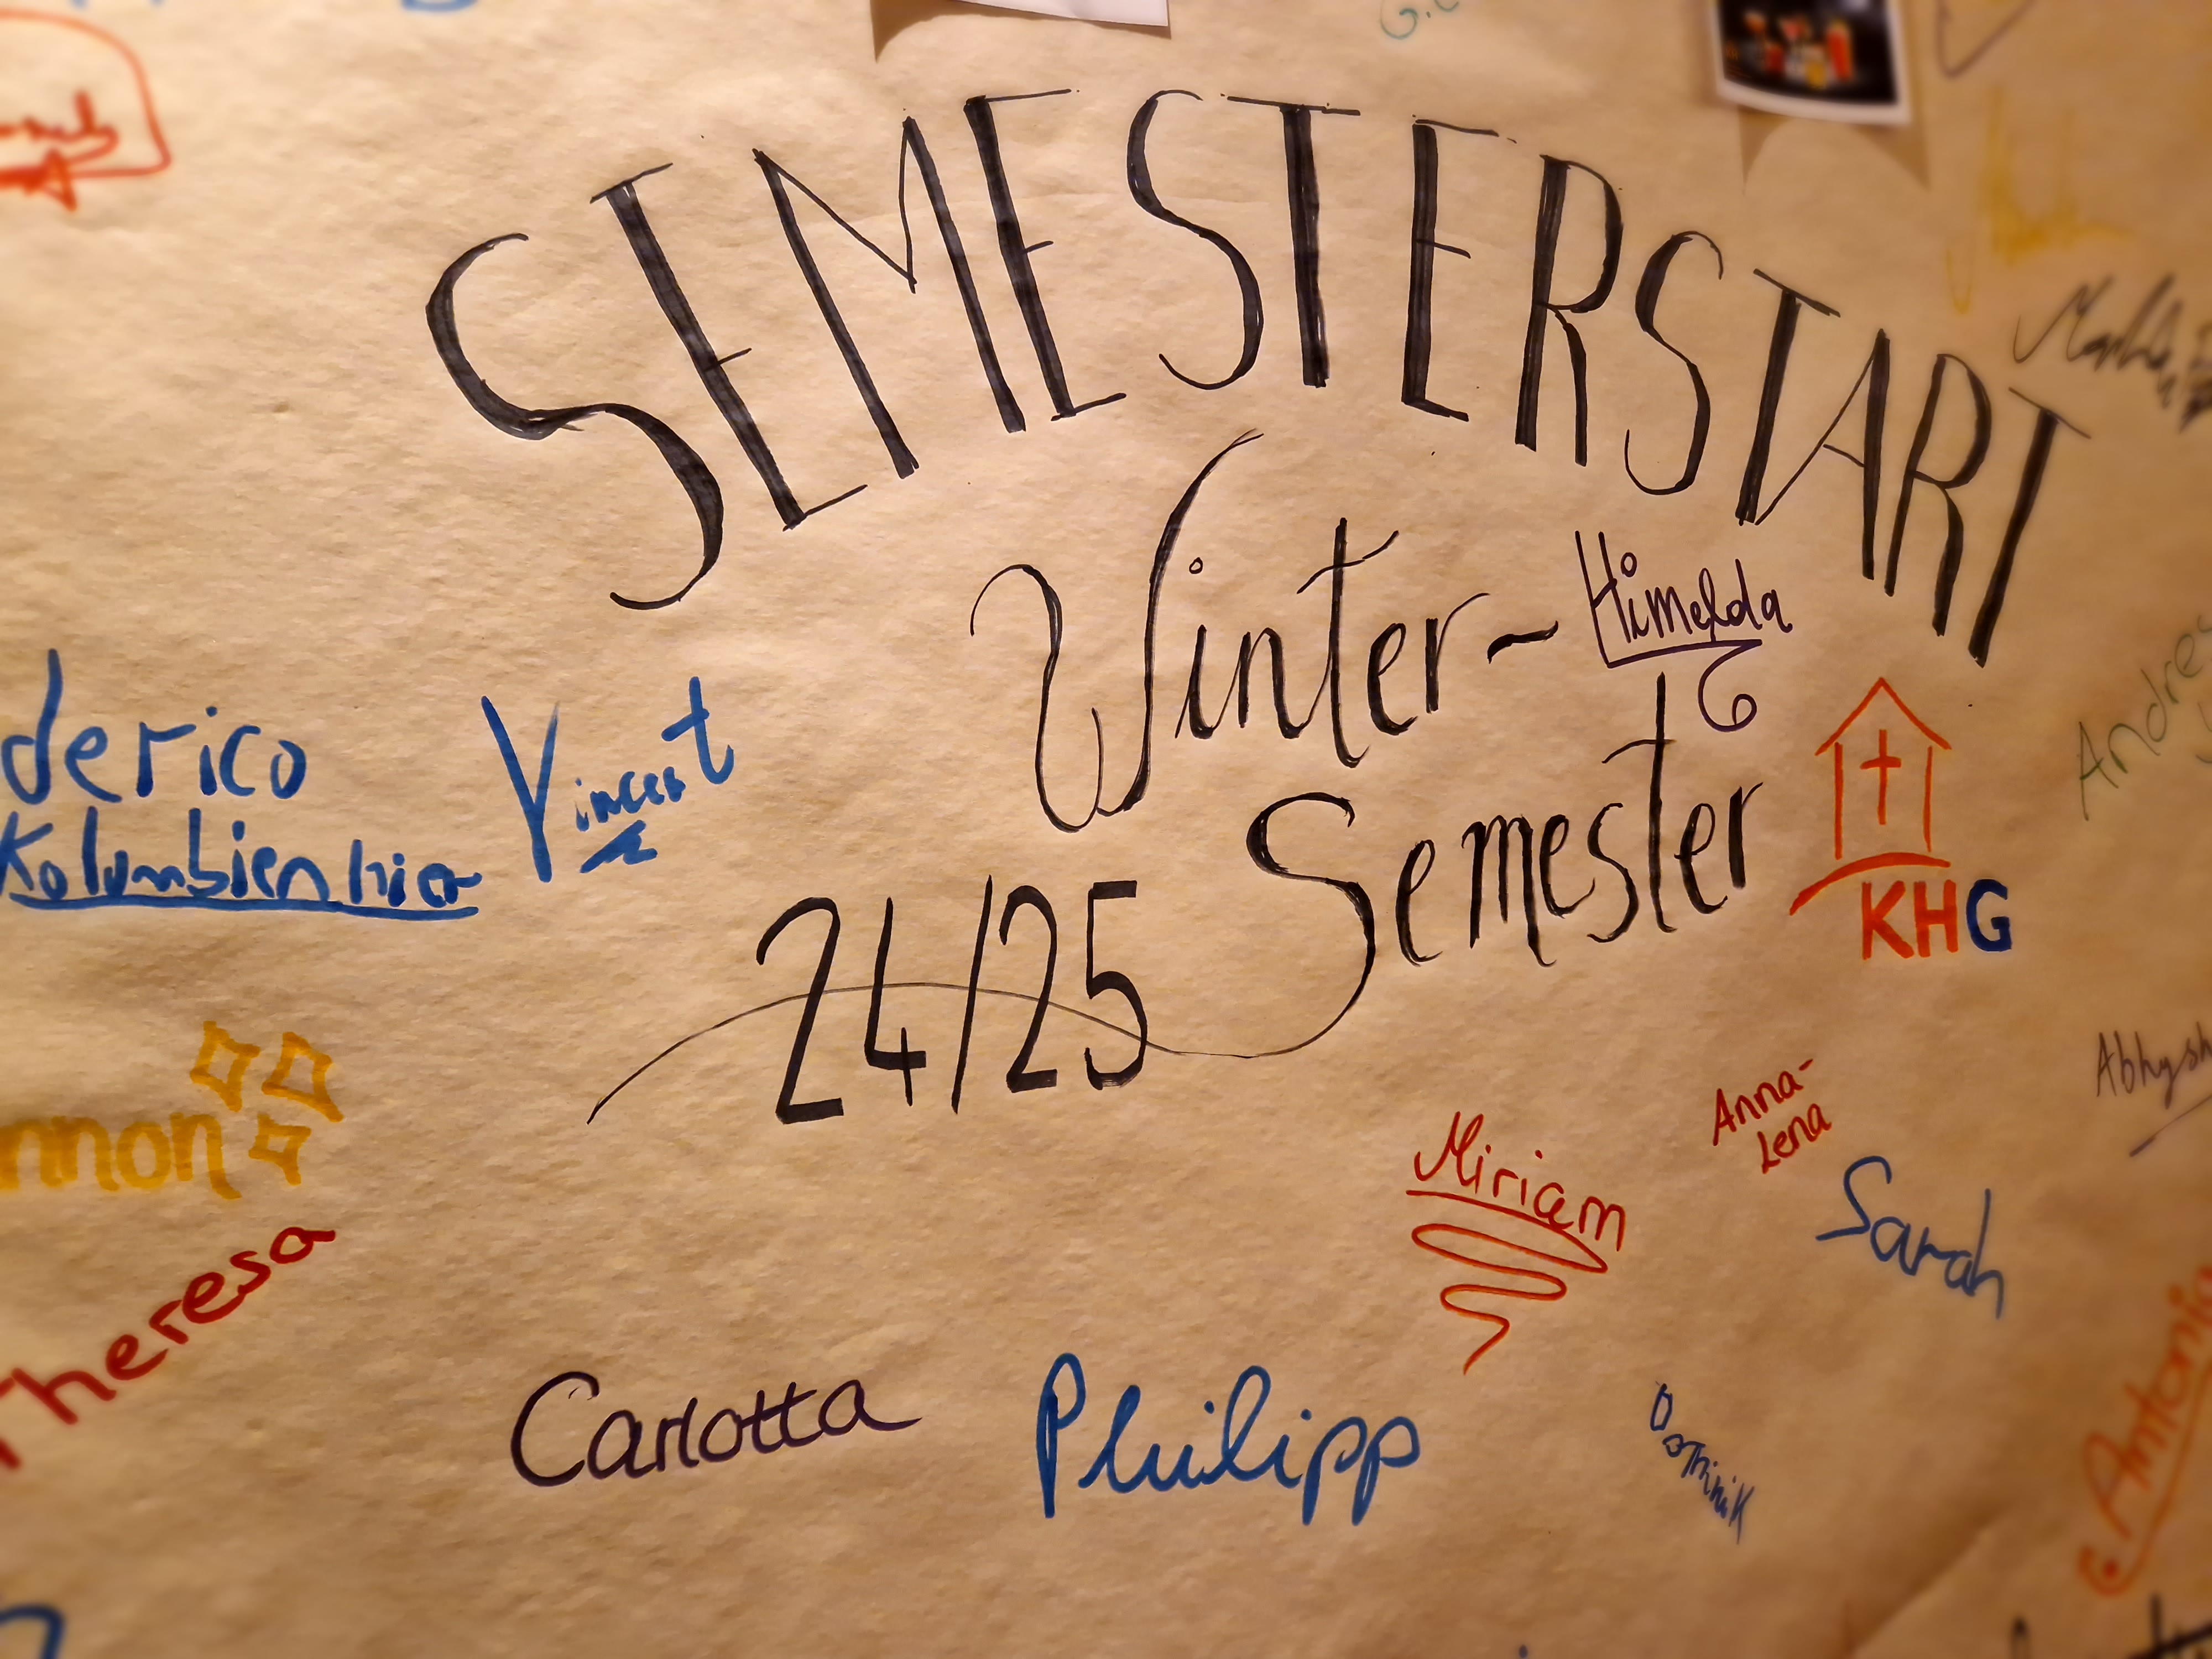 SEMESTERSTART
Winter-
Himelda
Semester
24/25
KHG
derico
Kolumbien hier
Vincent
Andre
nnon
Theresa
Abhysh
Anna-
Lena
Miriam
Sarah
Carlotta
Philipp
Dominik
Antonia